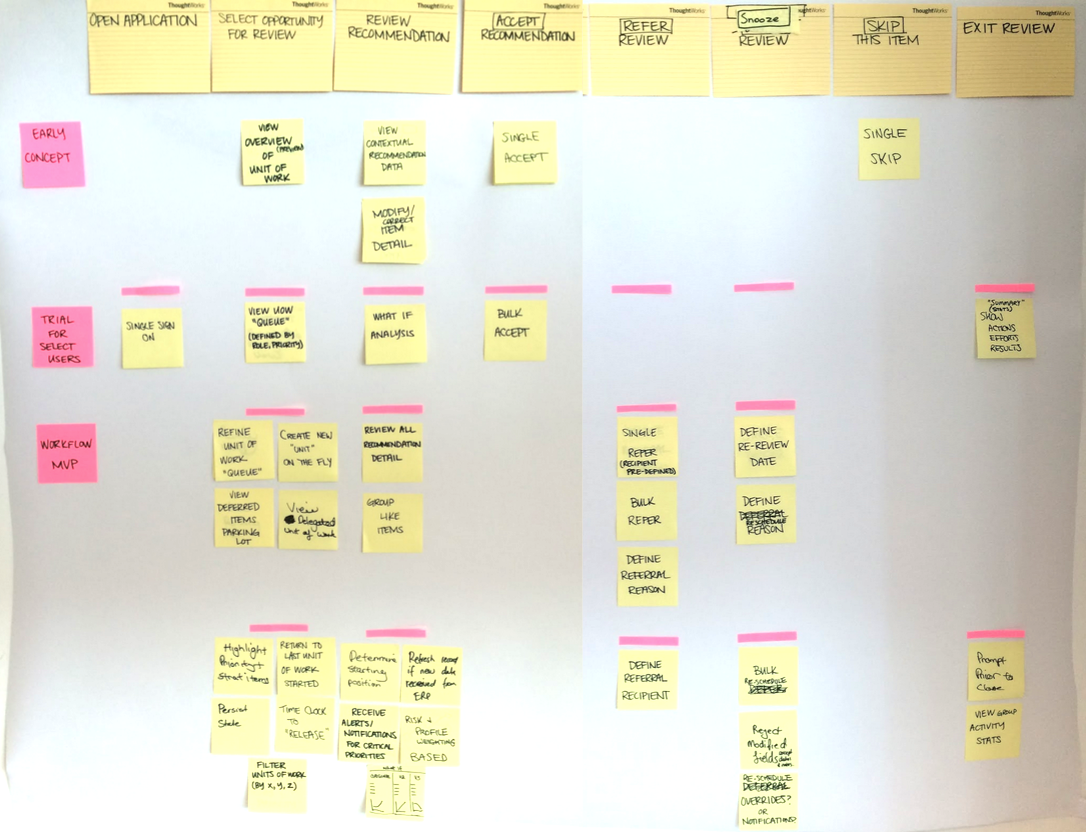 ThoughtWorks
OPEN APPLICATION
ThoughtWorks
SELECT OPPORTUNITY
FOR REVIEW
ThoughtWorks
REVIEW
RECOMMENDATION
ThoughtWorks
ACCEPT
RECOMMENDATION
ThoughtWorks
REFER
REVIEW
Snooze
REVIEW
ThoughtWorks
SKIP
THIS ITEM
ThoughtWorks
EXIT REVIEW
EARLY
CONCEPT
VIEW
OVERVIEW (PREVIEW)
OF
UNIT OF
WORK
VIEW
CONTEXTUAL
RECOMMENDATION
DATA
SINGLE
ACCEPT
SINGLE
SKIP
MODIFY/
CORRECT
ITEM
DETAIL
TRIAL
FOR
SELECT
USERS
SINGLE SIGN
ON
VIEW UOW
"QUEUE"
(DEFINED BY
ROLE, PRIORITY)
WHAT IF
ANALYSIS
BULK
ACCEPT
"SUMMARY"
(STATS)
SHOW
ACTIONS
EFFORTS
RESULTS
WORKFLOW
MVP
REFINE
UNIT OF
WORK
"QUEUE"
CREATE NEW
"UNIT"
ON THE FLY
REVIEW ALL
RECOMMENDATION
DETAIL
SINGLE
REFER
(RECIPIENT
PRE-DEFINED)
DEFINE
RE-REVIEW
DATE
VIEW
DEFERRED
ITEMS
PARKING
LOT
View
Delegated
unit of work
GROUP
LIKE
ITEMS
BULK
REFER
DEFINE
DEFERRAL
RESCHEDULE
REASON
DEFINE
REFERRAL
REASON
Highlight
Priority+
Strat items
RETURN TO
LAST UNIT
OF WORK
STARTED
Determine
starting
position
Refresh
if new data
received from
ERP
DEFINE
REFERRAL
RECIPIENT
BULK
RE-SCHEDULE
DEFER
Prompt
Prior to
Close
Persist
State
TIME CLOCK
TO
"RELEASE"
RECEIVE
ALERTS/
NOTIFICATIONS
FOR CRITICAL
PRIORITIES
RISK +
PROFILE
WEIGHTING
BASED
Reject
Modified
fields
VIEW GROUP
ACTIVITY
STATS
FILTER
UNITS OF WORK
(BY X, Y, Z)
RE-SCHEDULE
DEFERRAL
OVERRIDES?
OR
NOTIFICATION?